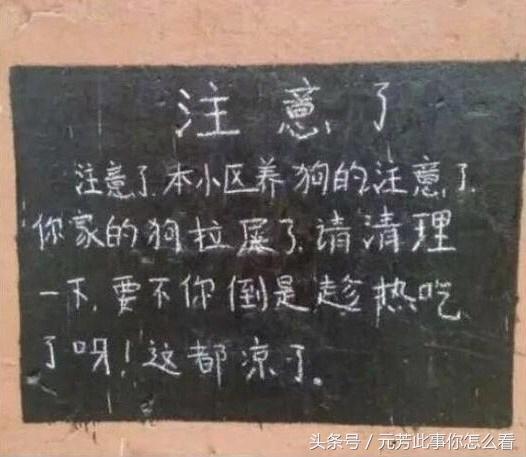 注意了
注意了.本小区养狗的注意了.
你家的狗拉屎了.请清理
一下,要不你倒是趁热吃
了呀!这都凉了。
头条号/元芳此事你怎么看